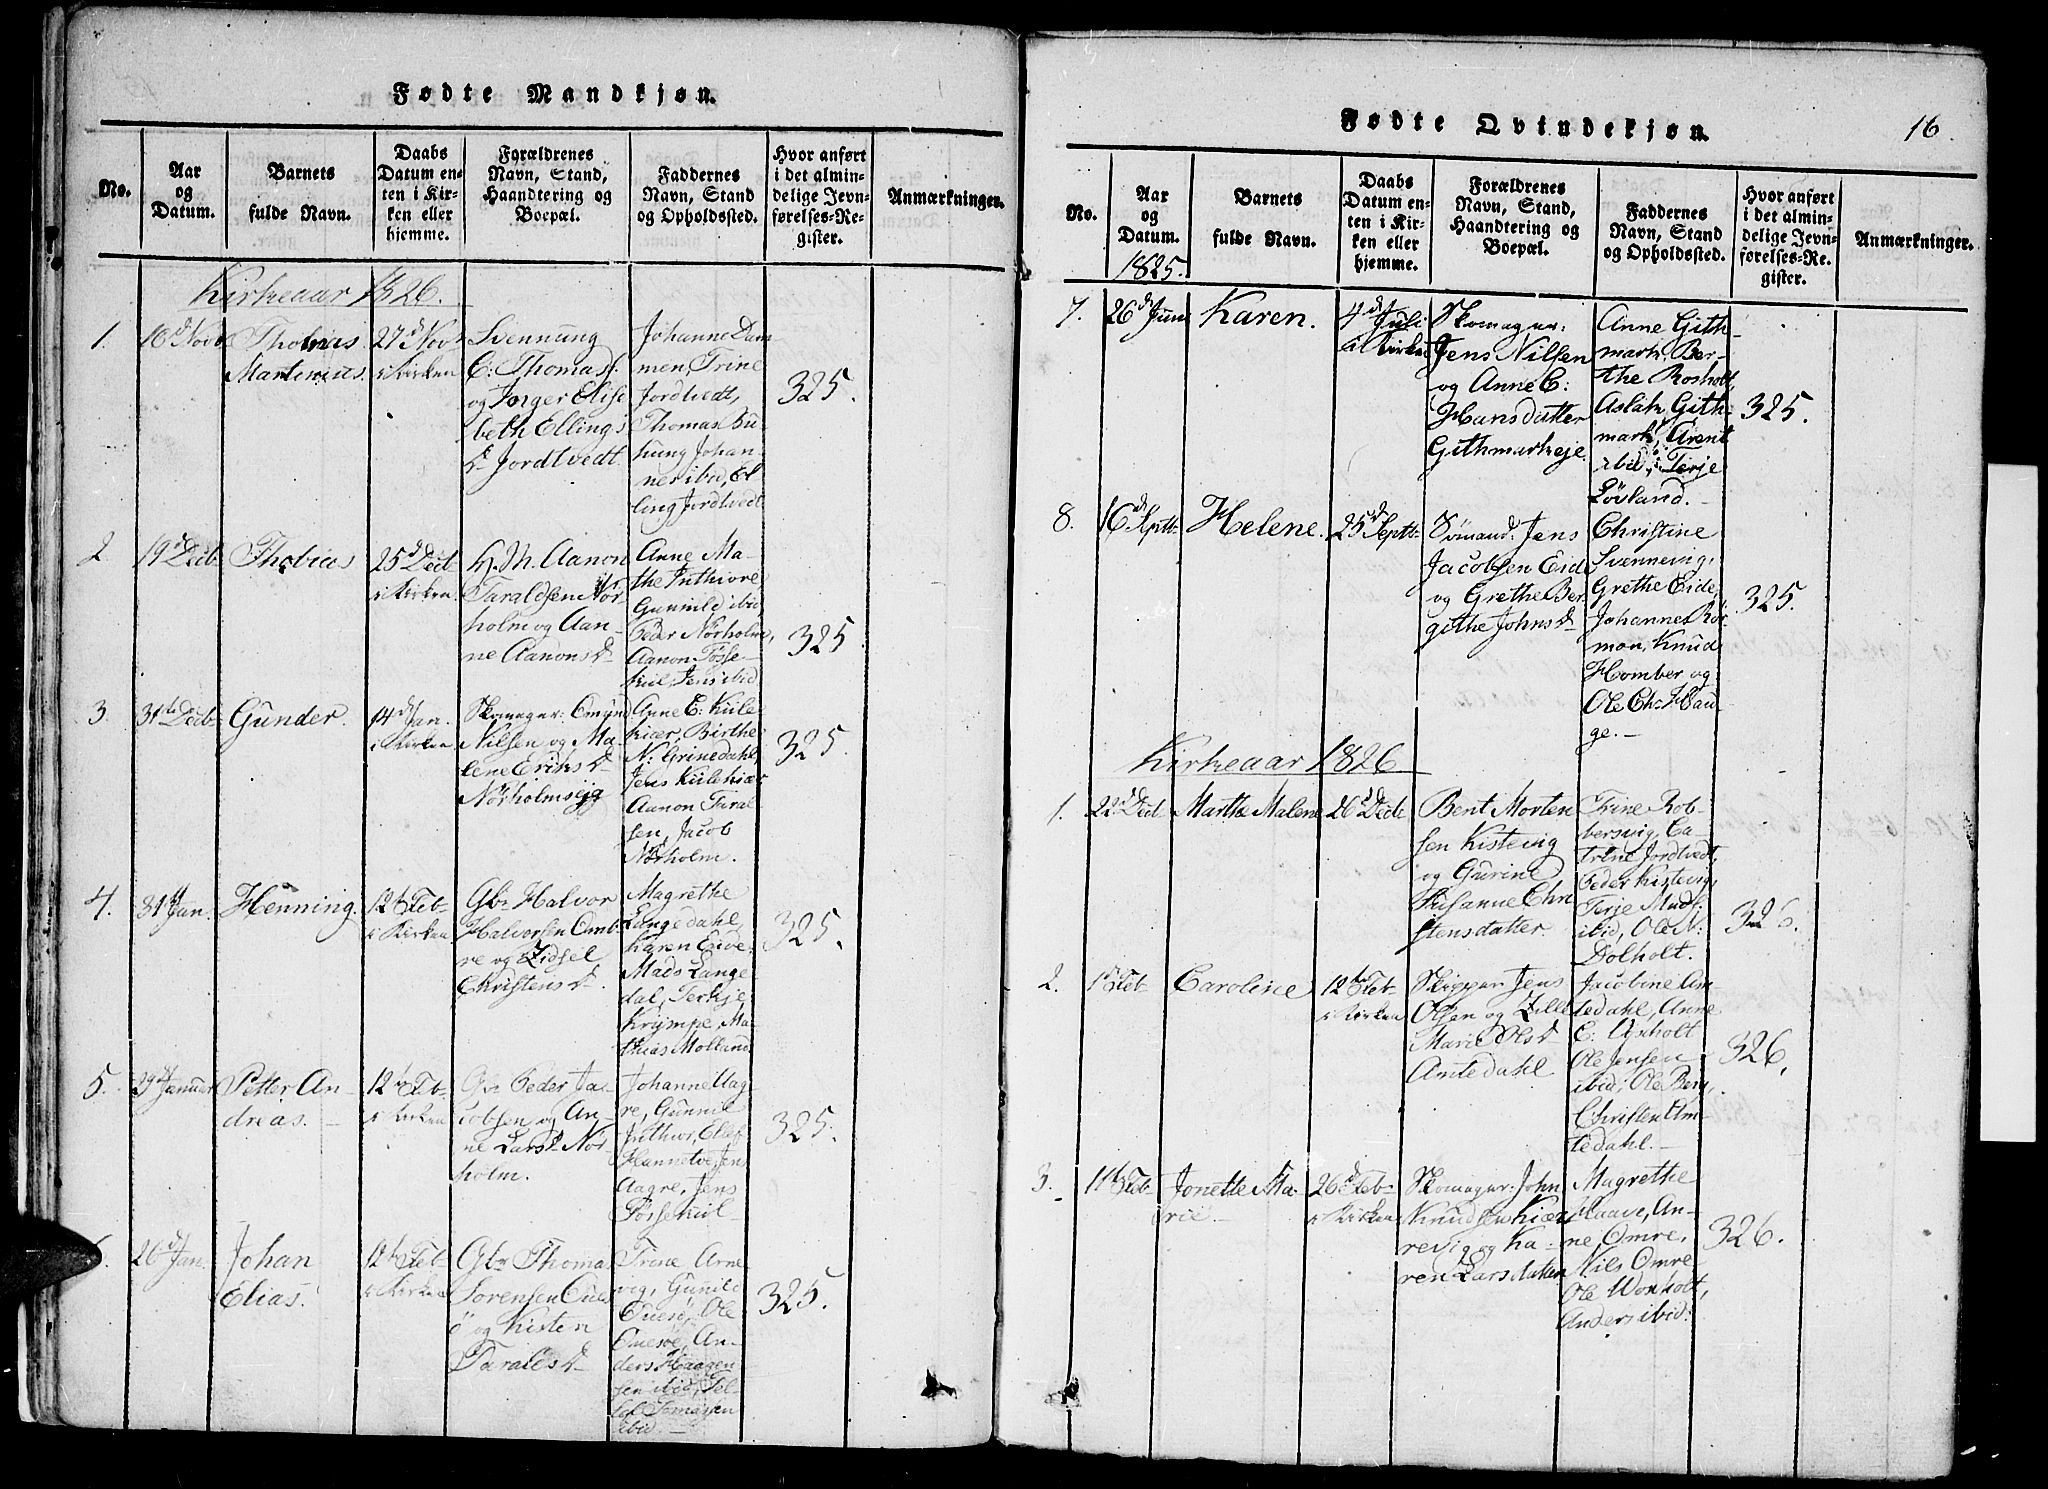 Fødte Mandkjøn.
No.
Aar
og
Datum.
Barnets
fulde Navn.
Daabs
Datum en-
ten i Kir-
ken eller
hjemme.
Forældrenes
Navn, Stand,
Haandtering og
Boepæl.
Faddernes
Navn, Stand
og Opholdssted.
Hvor anført
i det almin-
delige Jevn-
førelses-Re-
gister.
Anmærkninger.
Kirkeaar 1826.
1.
16d Novb
Thobias
Martinius.
27d Novb
i Kirken
Svennung
C: Thomass.
og Jorger Elise
beth Ellings
Dr Jordtvedt.
Johanne Dam
men, Trine
Jordtvedt,
Thomas Bu-
hung Johan-
nes ibid, El
ling Jordtvedt
325.
2
19d Decb
Thobias
25d Decb
i Kirken.
H. M. Aanon
Taraldsen Nör-
holm og Aan-
ne Aanonsdr
Anne Ma-
the Inthiore
Gunnild ibid
Peder Nörholm,
Aanon Fosse-
kül, Jens ibid
325
3.
31te Decb
Gunder.
14d Jan.
i Kirken
Skomager: Omund
Nilsen og Ma-
lene Eriksdr
Nörholmseje
Anne E: Kule
kiær, Birthe
N: Grinedahl,
Jens Kulekiær
Aanon Taral
sen, Jacob
Nörholm.
325.
4.
31t Jan.
Henning.
12te Feb-
i Kirken
Gbr Halvor
Halvorsen Omb-
re og Zidsel
Christensdr.
Magrethe
Langedahl,
Karen Eive-
Mads Lange
dal, Terkje
Krÿmpe, Ma-
thias Molland.
325.
5.
29d Januar
Petter An-
dreas.
12te Feb-
i Kirken
Gbr Peder Ja-
cobsen og An-
ne Larsdr Nör-
holm.
Johanne Aag-
re, Gunnil
Inthior, Ellef
Hannotve, Jens
Aagre, Jens
Fosse kul-
325.
6.
26d Jan.
Johan
Elias.
12te Feb-
i Kirken
Gbr Thomas
Sörensen Oues
ö og Kisten
Taralesdr
Trine Arne
vig, Gunild
Ouesö, Ole
Ouesöe, An-
ders Haagen
sen ibid, Sel-
lof Tomassen
ibid.-
325.
Fødte Qvindekjøn.
16.
No.
Aar
og
Datum.
1825.
Barnets
fulde Navn.
Daabs
Datum en-
ten i Kir-
ken eller
hjemme.
Forældrenes
Navn, Stand,
Haandtering og
Boepæl.
Faddernes
Navn, Stand
og Opholdssted.
Hvor anført
i det almin-
delige Jevn-
førelses-Re-
gister.
Anmærkninger.
7.
26d Juni
Karen.
4d Juli
i Kirken
Skomager:
Jens Nilsen
og Anne C:
Hansdatter
Githmarkeje.
Anne Gith-
mark, Ber-
the Rosholt,
Aslak Gith-
mark, Arent
ibid, Terje
Lövland.-
325.
8.
16d Septb-
Helene.
25d Septb-
Sömand. Jens
Jacobsen Eide
og Grethe Ber-
githe Johnsdr
Christine
Svennevig,
Grethe Eide,
Johannes Rör-
mon, Knud
Homber og
Ole Chr Hau-
ge.-
325.
Kirkeaar 1826
1.
22d Decb
Marthe Malene
26d Decb
Bent Morten
sen Kistevig
og Gurine
Susanne Chri
stensdatter.
Trine Rob-
bersvig, Ca-
trine Jordtvedt,
Peder Kistevig,
Terje Mads.
ibid, Ole N:
Dolholt.
326.
2.
1d Feb
Caroline
12te Feb
i Kirken
Skipper Jens
Olsen og Zille
Marie Olsdr
Amtedahl
Jacobine Am
tedahl, Anne
E: Uxholt
Ole Jensen
ibid, Ole Berg,
Christen Am-
tedahl.-
326.
3.
11te Feb
Jonette Ma-
rie.-
26d Feb-
i Kirken
Skomager: John
Knudsen Kiær
revig og Ka-
ren Larsdatter
Magrethe
Haave, An-
ne Omre,
Nils Omre
Ole Wonholt,
Anders ibid:
326.